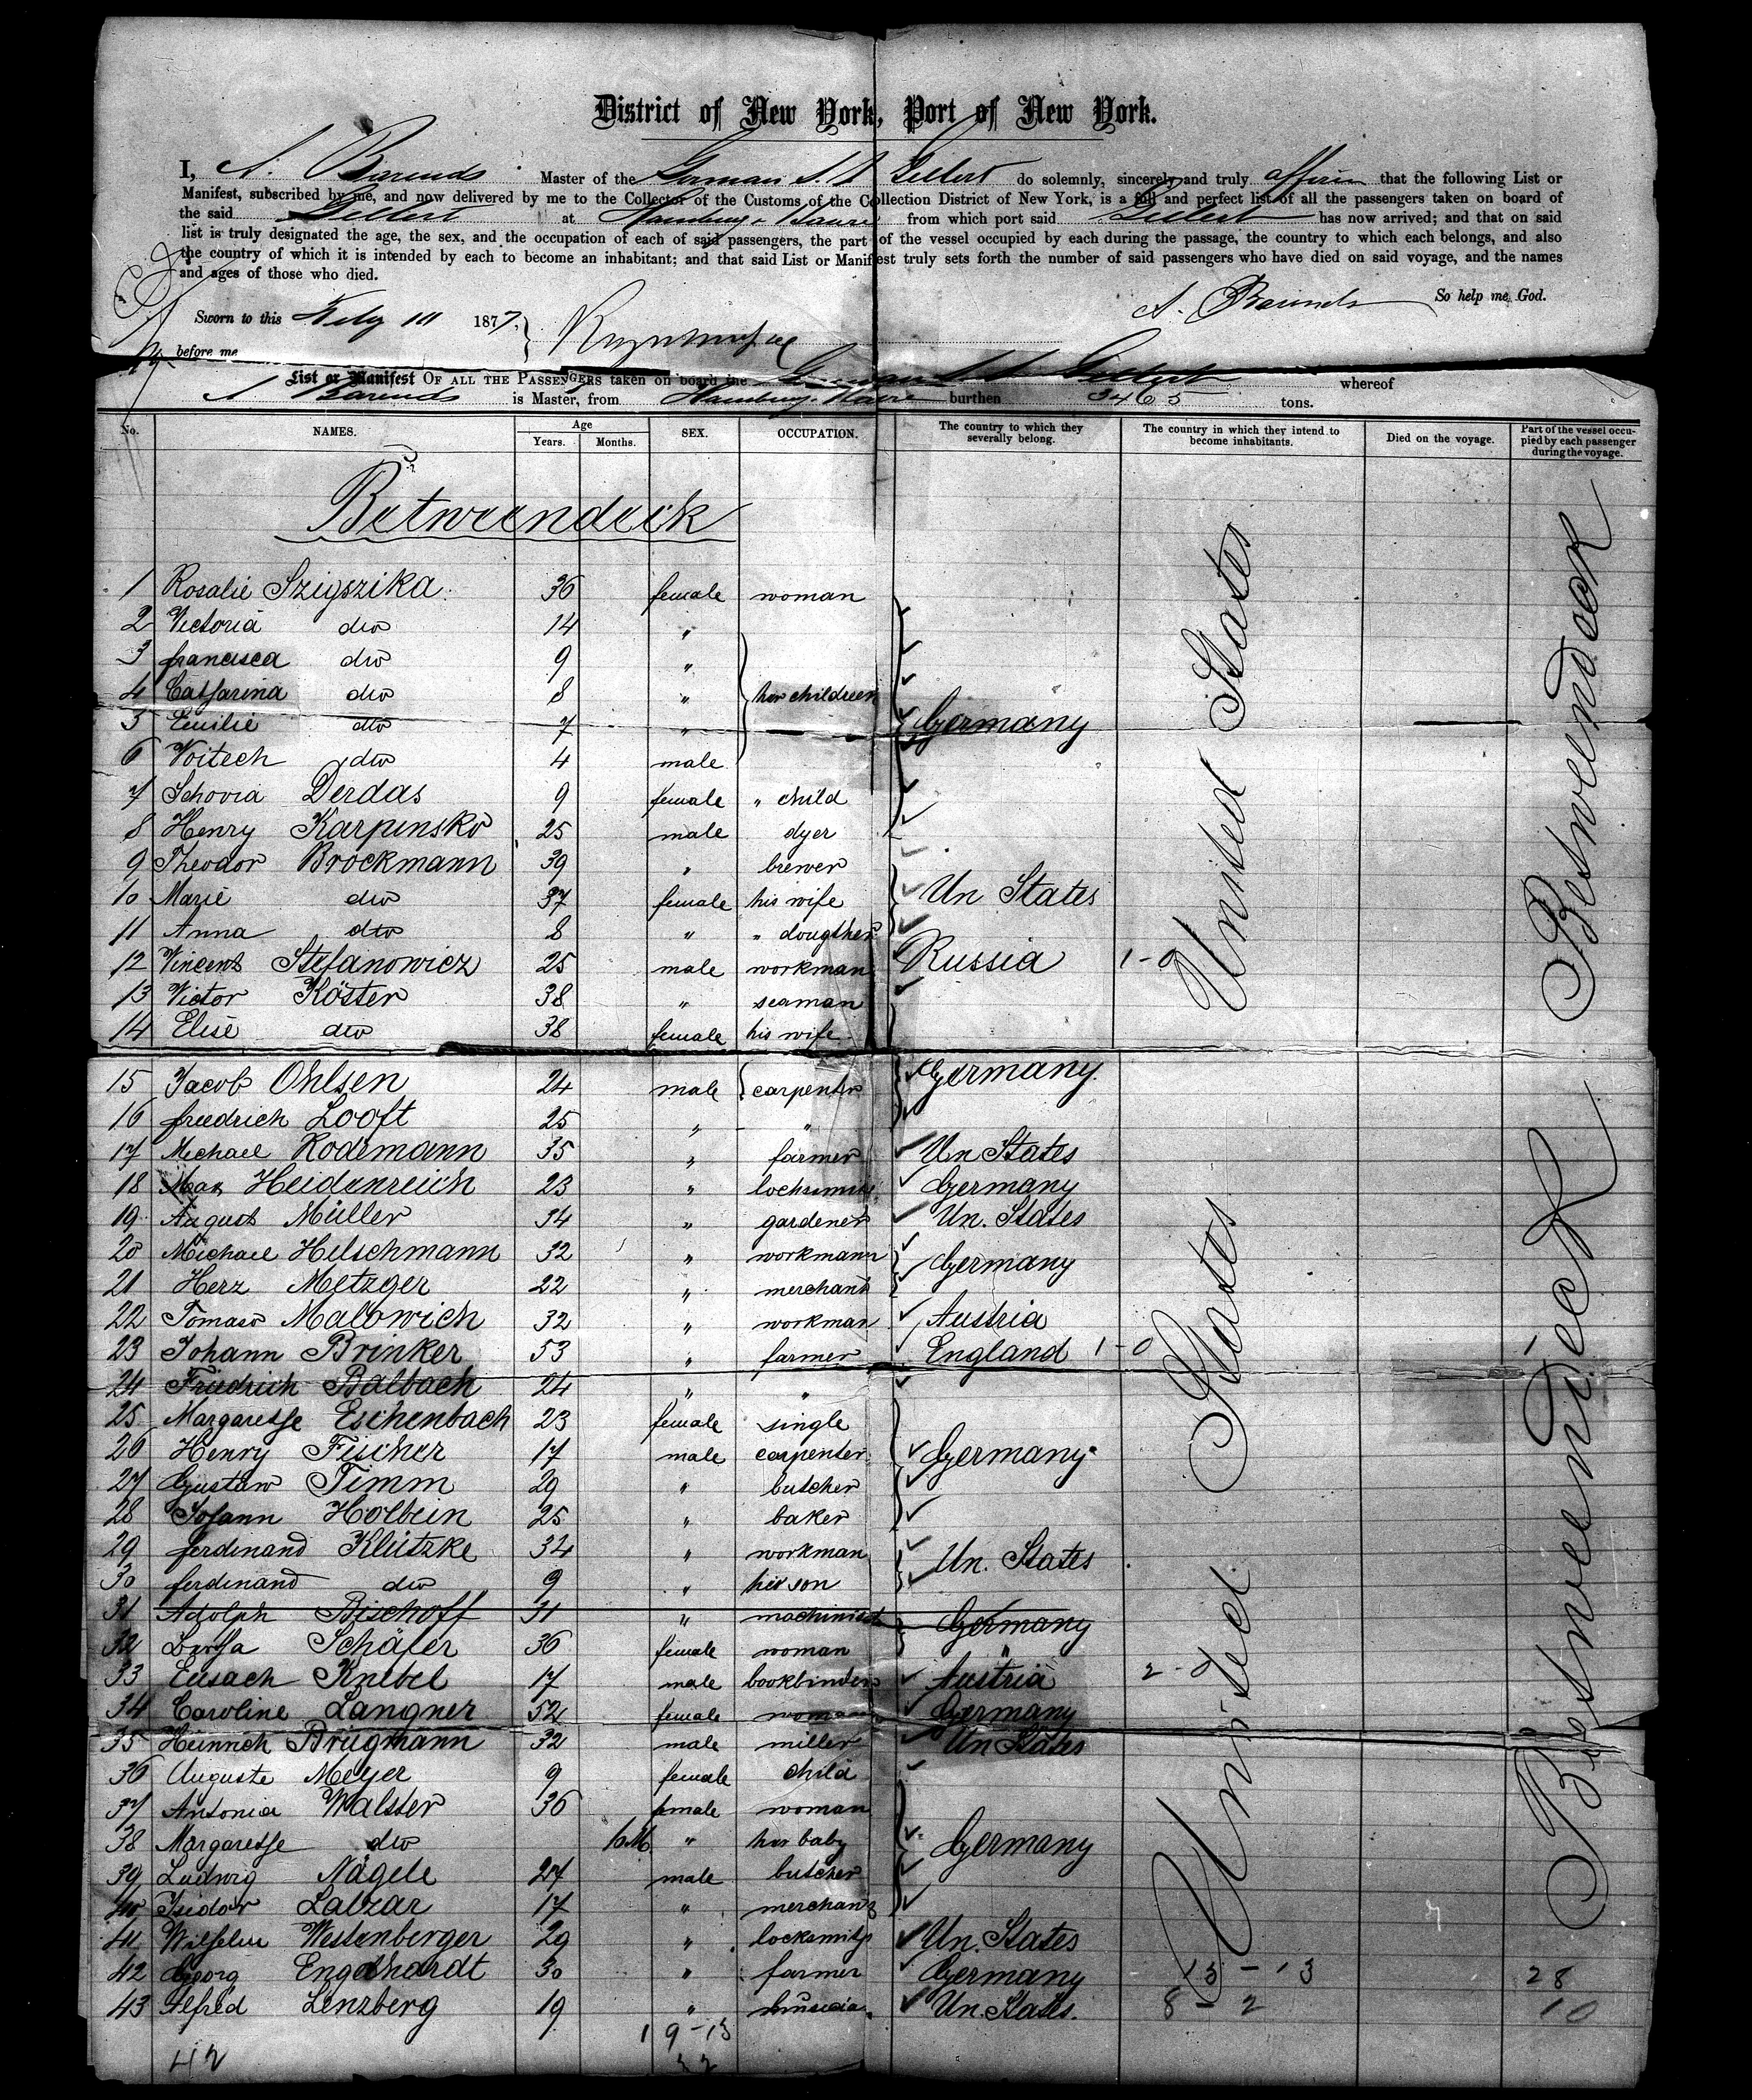 District of New York, Port of New York.
I, A. Barends Master of the German S. S. Gellert do solemnly, sincerely and truly affirm that the following List or
Manifest, subscribed by me, and now delivered by me to the Collector of the Customs of the Collection District of New York, is a full and perfect list of all the passengers taken on board of
the said Gellert at Hamburg & Havre from which port said Gellert has now arrived; and that on said
list is truly designated the age, the sex, and the occupation of each of said passengers, the part of the vessel occupied by each during the passage, the country to which each belongs, and also
the country of which it is intended by each to become an inhabitant; and that said List or Manifest truly sets forth the number of said passengers who have died on said voyage, and the names
and ages of those who died.
A. Barends So help me God.
Sworn to this 1877,
before me
List or Manifest OF ALL THE PASSENGERS taken on board the German S. S. Gellert whereof
A Barends is Master, from Hamburg, Havre burthen 3465 tons.
No. NAMES. Age Years. Months. SEX. OCCUPATION. The country to which they severally belong. The country in which they intend to become inhabitants. Died on the voyage. Part of the vessel occupied by each passenger during the voyage.
Betweendeck
1 Rosalie Szigszika 36 female woman
2 Victoria dto 14 "
3 francisca dto 9 "
4 Catharina dto 8 " her children
5 Emilie dto 7 " Germany
6 Voitech dto 4 male
7 Schovia Derdas 9 female " child
8 Henry Karpinsko 25 male dyer
9 Theodor Brockmann 39 " brewer
10 Marie dto 37 female his wife Un States
11 Anna dto 8 " " dougther
12 Vincent Stefanowicz 25 male workman Russia 1-0
13 Victor Köster 38 " seaman
14 Elise dto 38 female his wife
15 Jacob Ohlsen 24 male carpenter Germany.
16 friedrich Looft 25 " "
17 Michael Rodemann 35 " farmer Un States
18 Max Heidenreich 23 " Germany
19 August Müller 34 " gardener Un. States
20 Michael Helschmann 32 " workmann Germany
21 Herz Metzger 22 " merchant
22 Tomaso Malowich 32 " workman Austria
23 Johann Brinker 53 " farmer England 1-0
24 Friedrich Balbach 24 " "
25 Margarethe Eschenbach 23 female single
26 Henry Fischer 17 male carpenter Germany
27 Gustav Timm 29 " butcher
28 Johann Holbein 25 " baker
29 ferdinand Klützke 34 " workman Un. States
30 ferdinand dto 9 " his son
31 Adolph Bischoff 31 " machinist Germany
32 Bertha Schäfer 36 female woman "
33 Eusach Knebel 17 male bookbinder Austria 2-0
34 Caroline Langner 52 female woman Germany
35 Heinrich Brügmann 32 male miller Un States
36 Auguste Meyer 9 female child
37 Antonia Walster 36 female woman
38 Margarethe dto 10M " her baby Germany
39 Ludwig Nägele 27 male butcher
40 Isidor Lalzar 17 " merchant
41 Wilhelm Westenberger 29 " locksmith Un. States
42 Georg Engelhardt 30 " farmer Germany 13-13 28
43 Alfred Lenzberg 19 " musician Un. States. 8-2 10
1 9-13
42 32
United States
United States
Betweendeck
Betweendeck